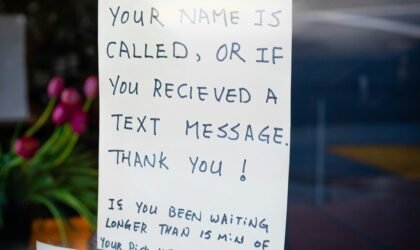 YOUR NAME IS
CALLED, OR IF
YOU RECIEVED A
TEXT MESSAGE.
THANK YOU!
IF YOU BEEN WAITING
LONGER THAN 15 MIN OF
YOUR